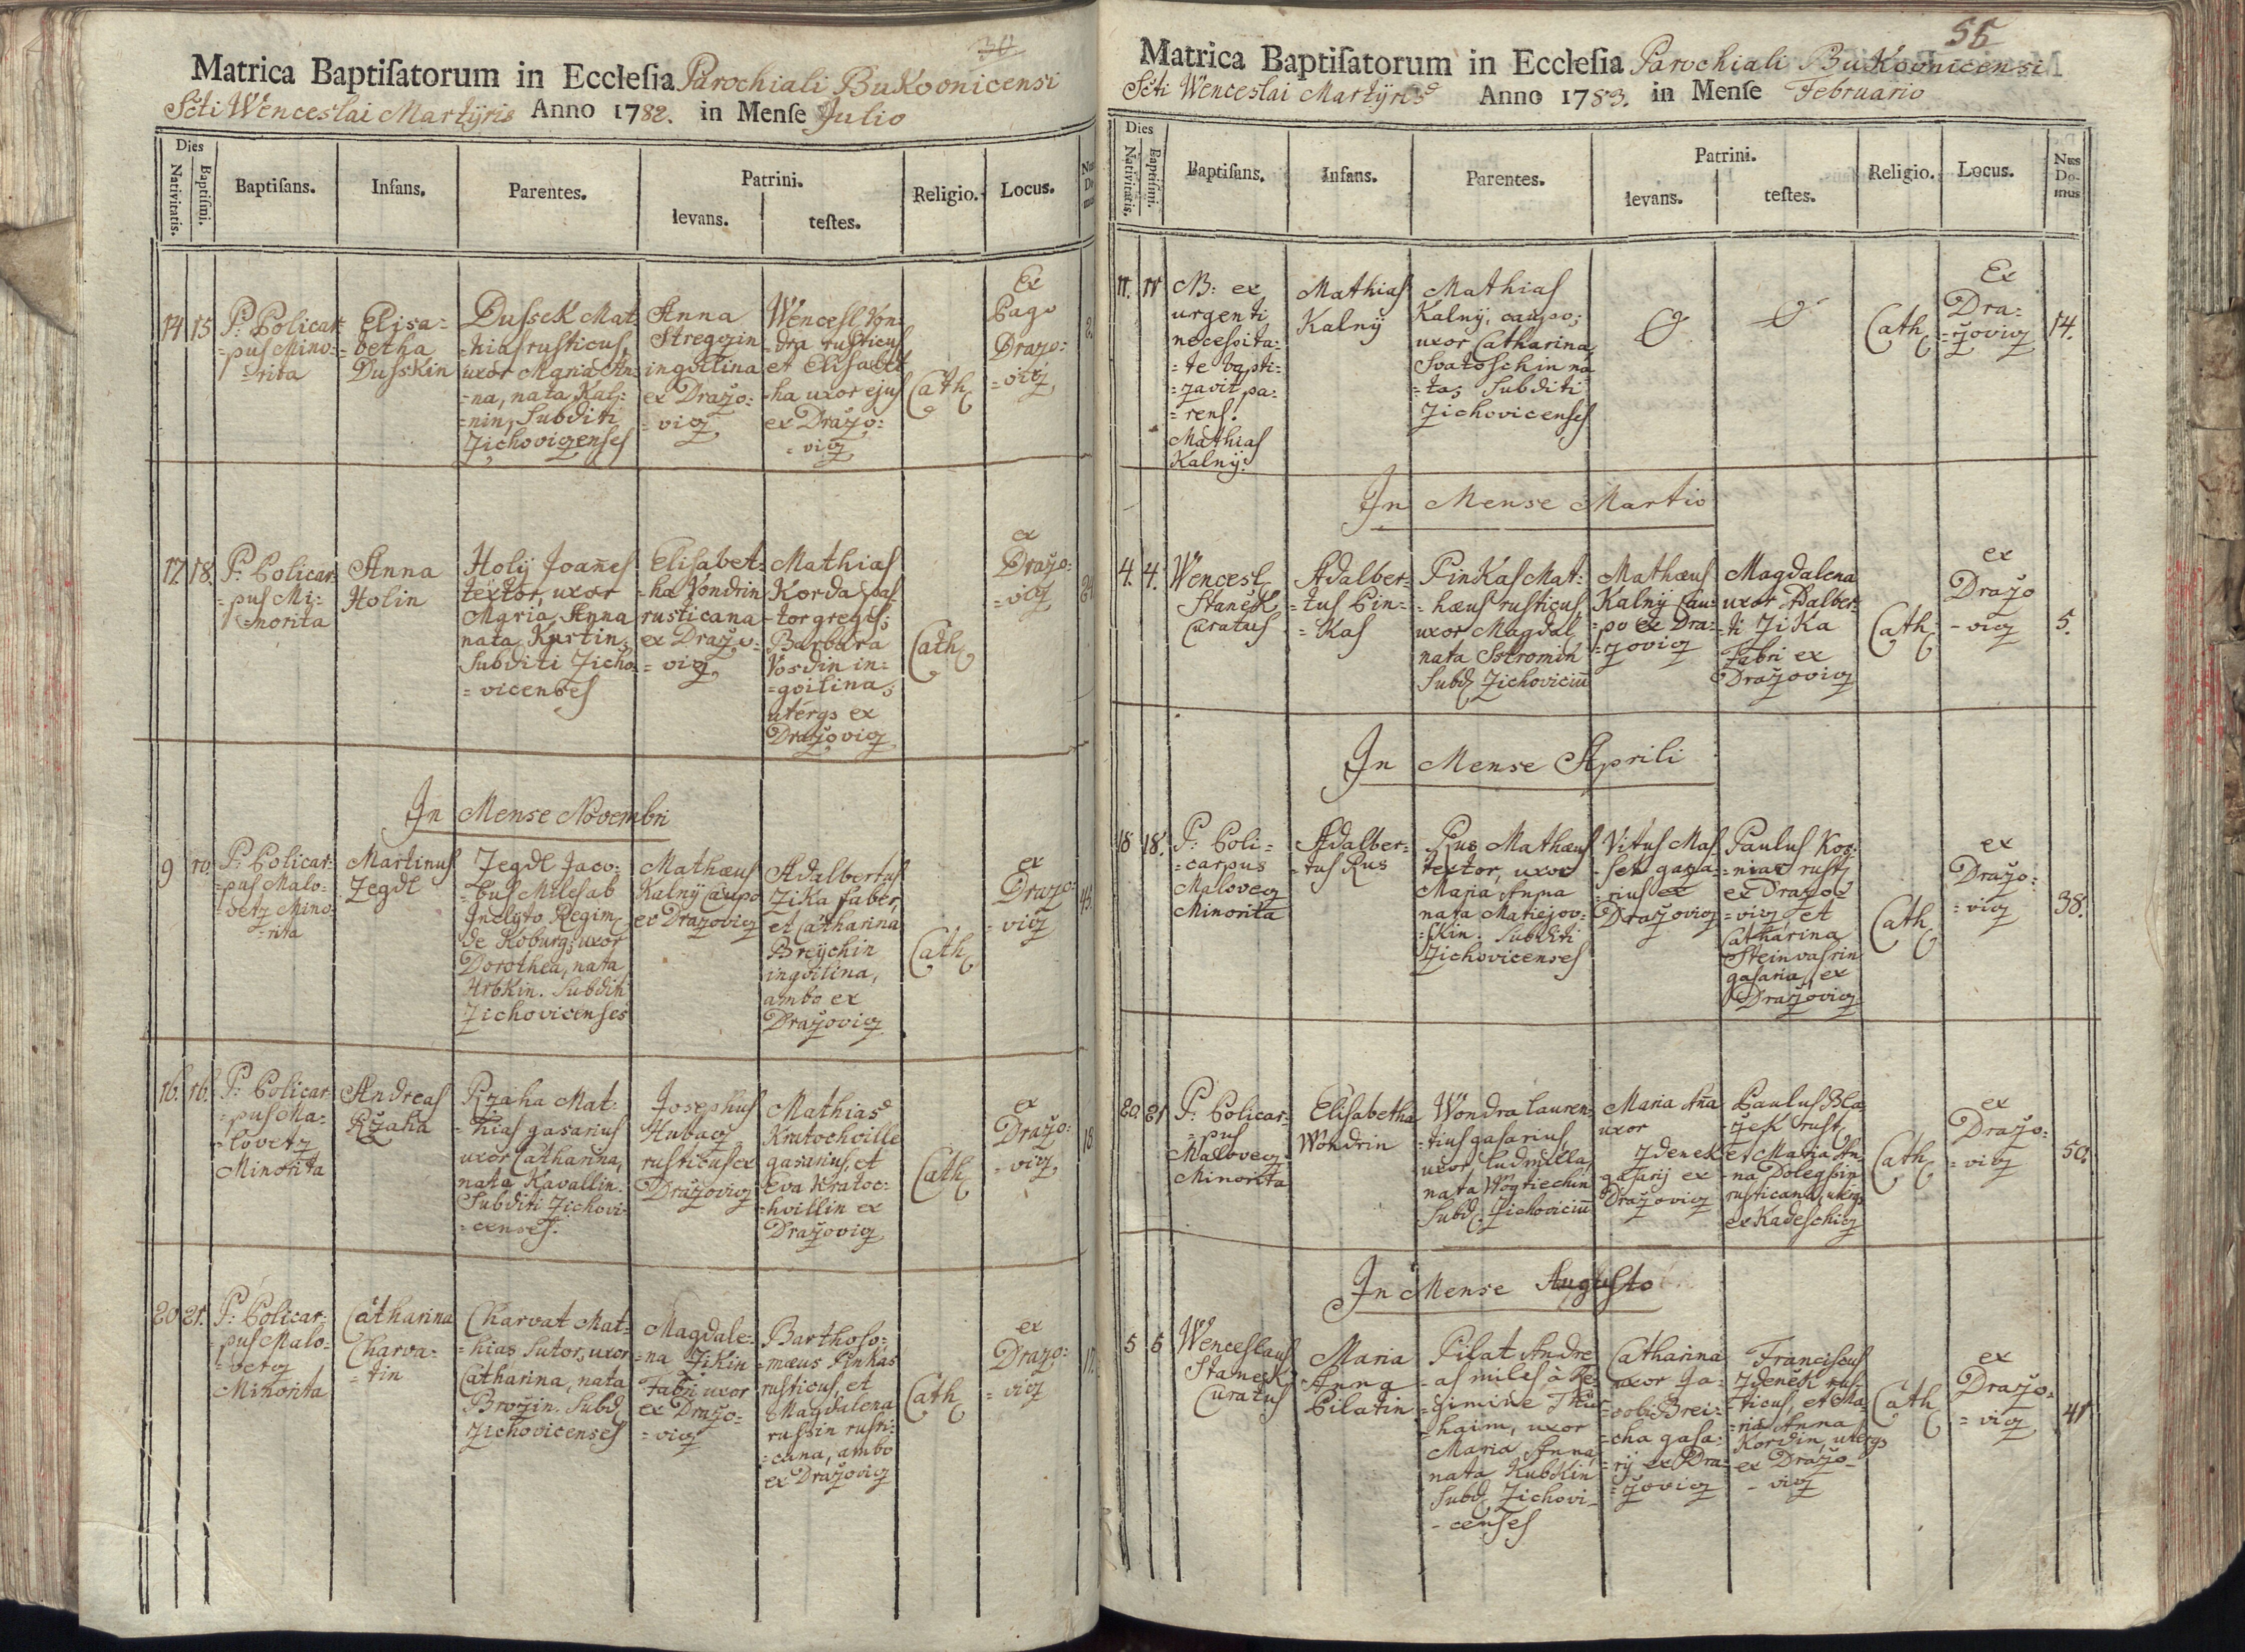 30
Matrica Baptiſatorum in Eccleſia Parochiali Bukovnicensi
Scti Wenceslai Martÿris Anno 1782. in Menſe Julio
Dies
Nativitatis.
Baptiſmi.
Baptiſans.
Infans.
Parentes.
Patrini.
levans.
teſtes.
Religio.
Locus.
14
15
P: Policar=
=pus Mino=
=rita
Elisa=
=betha
Dusskin
Dussek Mat=
=hias rusticus,
uxor Maria An=
=na, nata Kal=
=nin, Subditi
Zichovicenses
Anna
Stregzin
inquilina
ex Drazo=
=vicz
Wencesl: Von=
=dra rusticus
et Elisabet
=ha uxor ejus
ex Drazo=
=vicz
Cath
Ex
Pago
Drazo=
=vicz
2.
17.
18.
P: Policar=
=pus Mi=
=norita
Anna
Holin
Holÿ Joañes
textor, uxor
Maria Anna
nata Kurtin,
Subditi Zicho
=vicenses
Elisabet=
=ha Vondrin
rusticana
ex Drazo=
=vicz
Mathias
Korda pas
=tor gregis;
Barbara
Vosdin in=
=quilina,
uterqs ex
Drazovicz
Cath
ex
Drazo=
=vicz
In Mense Novembri
9
10.
P: Policar=
=pus Malo=
=vetz Mino=
=rita
Martinus
Jegdl
Jegdl Jaco=
=bus Miles ab
Inclyto Regim
de Koburg; uxor
Dorothea, nata
Hrbkin. Subditi
Zichovicenses
Mathæus
Kalnÿ Caupo
ex Drazovicz
Adalbertus
Zika faber,
et Catharina
Breÿchin
inquilina,
ambo ex
Drazovicz
Cath
ex
Drazo=
=vicz
16.
16.
P: Policar
=pus Ma=
=lovetz
Minorita
Andreas
Rzaha
Rzaha Mat=
=hias gasarius
uxor Catharina,
nata Kavallin.
Subditi Zichovi=
=censes.
Josephus
Hubacz
rusticus ex
Drazovicz
Mathias
Kratochville
gasarius, et
Eva Kratoc=
=hvillin ex
Drazovicz
Cath
ex
Drazo=
=vicz
18
20
21.
P: Policar=
=pus Malo=
=vetz
Minorita
Catharina
Charva=
=tin
Charvat Mat=
=hias Sutor, uxor
Catharina, nata
Brozin. Subd
Zichovicenses
Magdale=
=na Zikin
Fabri uxor
ex Drazo=
=vicz
Bartholo=
=mæus Pinkas
rusticus, et
Magdalena
russin rusti=
=cana, ambo
ex Drazovicz
Cath
ex
Drazo=
=vicz
17.
Matrica Baptiſatorum in Eccleſia Parochiali Bukovnicensi
Scti Wenceslai Martÿris Anno 1783. in Menſe Februario
Dies
Nativitatis.
Baptiſmi.
Baptiſans.
Infans.
Parentes.
Patrini.
levans.
teſtes.
Religio.
Locus.
Nus
Do-
mus
11.
11
NB: ex
urgenti
necessita=
=te bapti=
=zavit pa=
=rens.
Mathias
Kalnÿ.
Mathias
Kalnÿ
Mathias
Kalnÿ, caupo;
uxor Catharina,
Svatoschin na
=ta; Subditi
Zichovicenses
Cath
Ex
Dra=
=zovicz
14.
In Mense Martio
4.
4.
Wencesl
Stanek
Curatus
Adalber=
=tus Pin=
=kas
Pinkas Mat=
=hæus rusticus,
uxor Magdal
nata Sstromin
Subd Zichoviciũ
Mathæus
Kalnÿ Cau=
=po ex Dra=
=zovicz
Magdalena
uxor Adalber=
=ti Zika
Fabri ex
Drazovicz
Cath
ex
Drazo
=vicz
5.
In Mense Aprili
18
18.
P: Poli=
=carpus
Malovecz
Minorita
Adalber=
=tus Rus
Rus Mathæus
textor, uxor
Maria Anna
nata Matiejov=
=skin. Subditi
Zichovicenses
Vitus Mas
=sek gaza=
=rius ex
Drazovicz
Paulus Kor=
ex Drazo
=vicz et
Catharina
Steinvasrin
gasaria, ex
Drazovicz
Cath
ex
Drazo=
=vicz
38.
20
21
P: Policar=
=pus
Malovecz
Minorita
Elisabetha
Wondrin
Wondra Lauren=
=tius gasarius,
uxor, Ludmilla,
nata Wogtiechin
Subd. Zichoviciũ
Maria Aña
uxor
Zdenek
gasarij ex
Drazovicz
Paulus Bla
=zek rust,
et Maria An=
=na Dolegssin
rusticana, uterqs
ex Kadeschicz
Cath
ex
Drazo=
=vicz
50.
In Mense Augusto
5
6
Wenceslaus
Stanek
Curatus
Maria
Anna
Pilatin
Pilat Andre
=as miles à Re
=gimine Thur
=haim, uxor
Maria Anna,
nata Kubkin
Subd Zichovi=
=censes
Catharina
uxor Ja=
=cobi Brei=
=cha gasa=
=rij ex Dra=
=zovicz
Franciscus
Zdenek rus=
=ticus, et Ma=
=ria Anna
Kordin, uterqs
ex Drazo=
=vicz
Cath
ex
Drazo=
=vicz
41